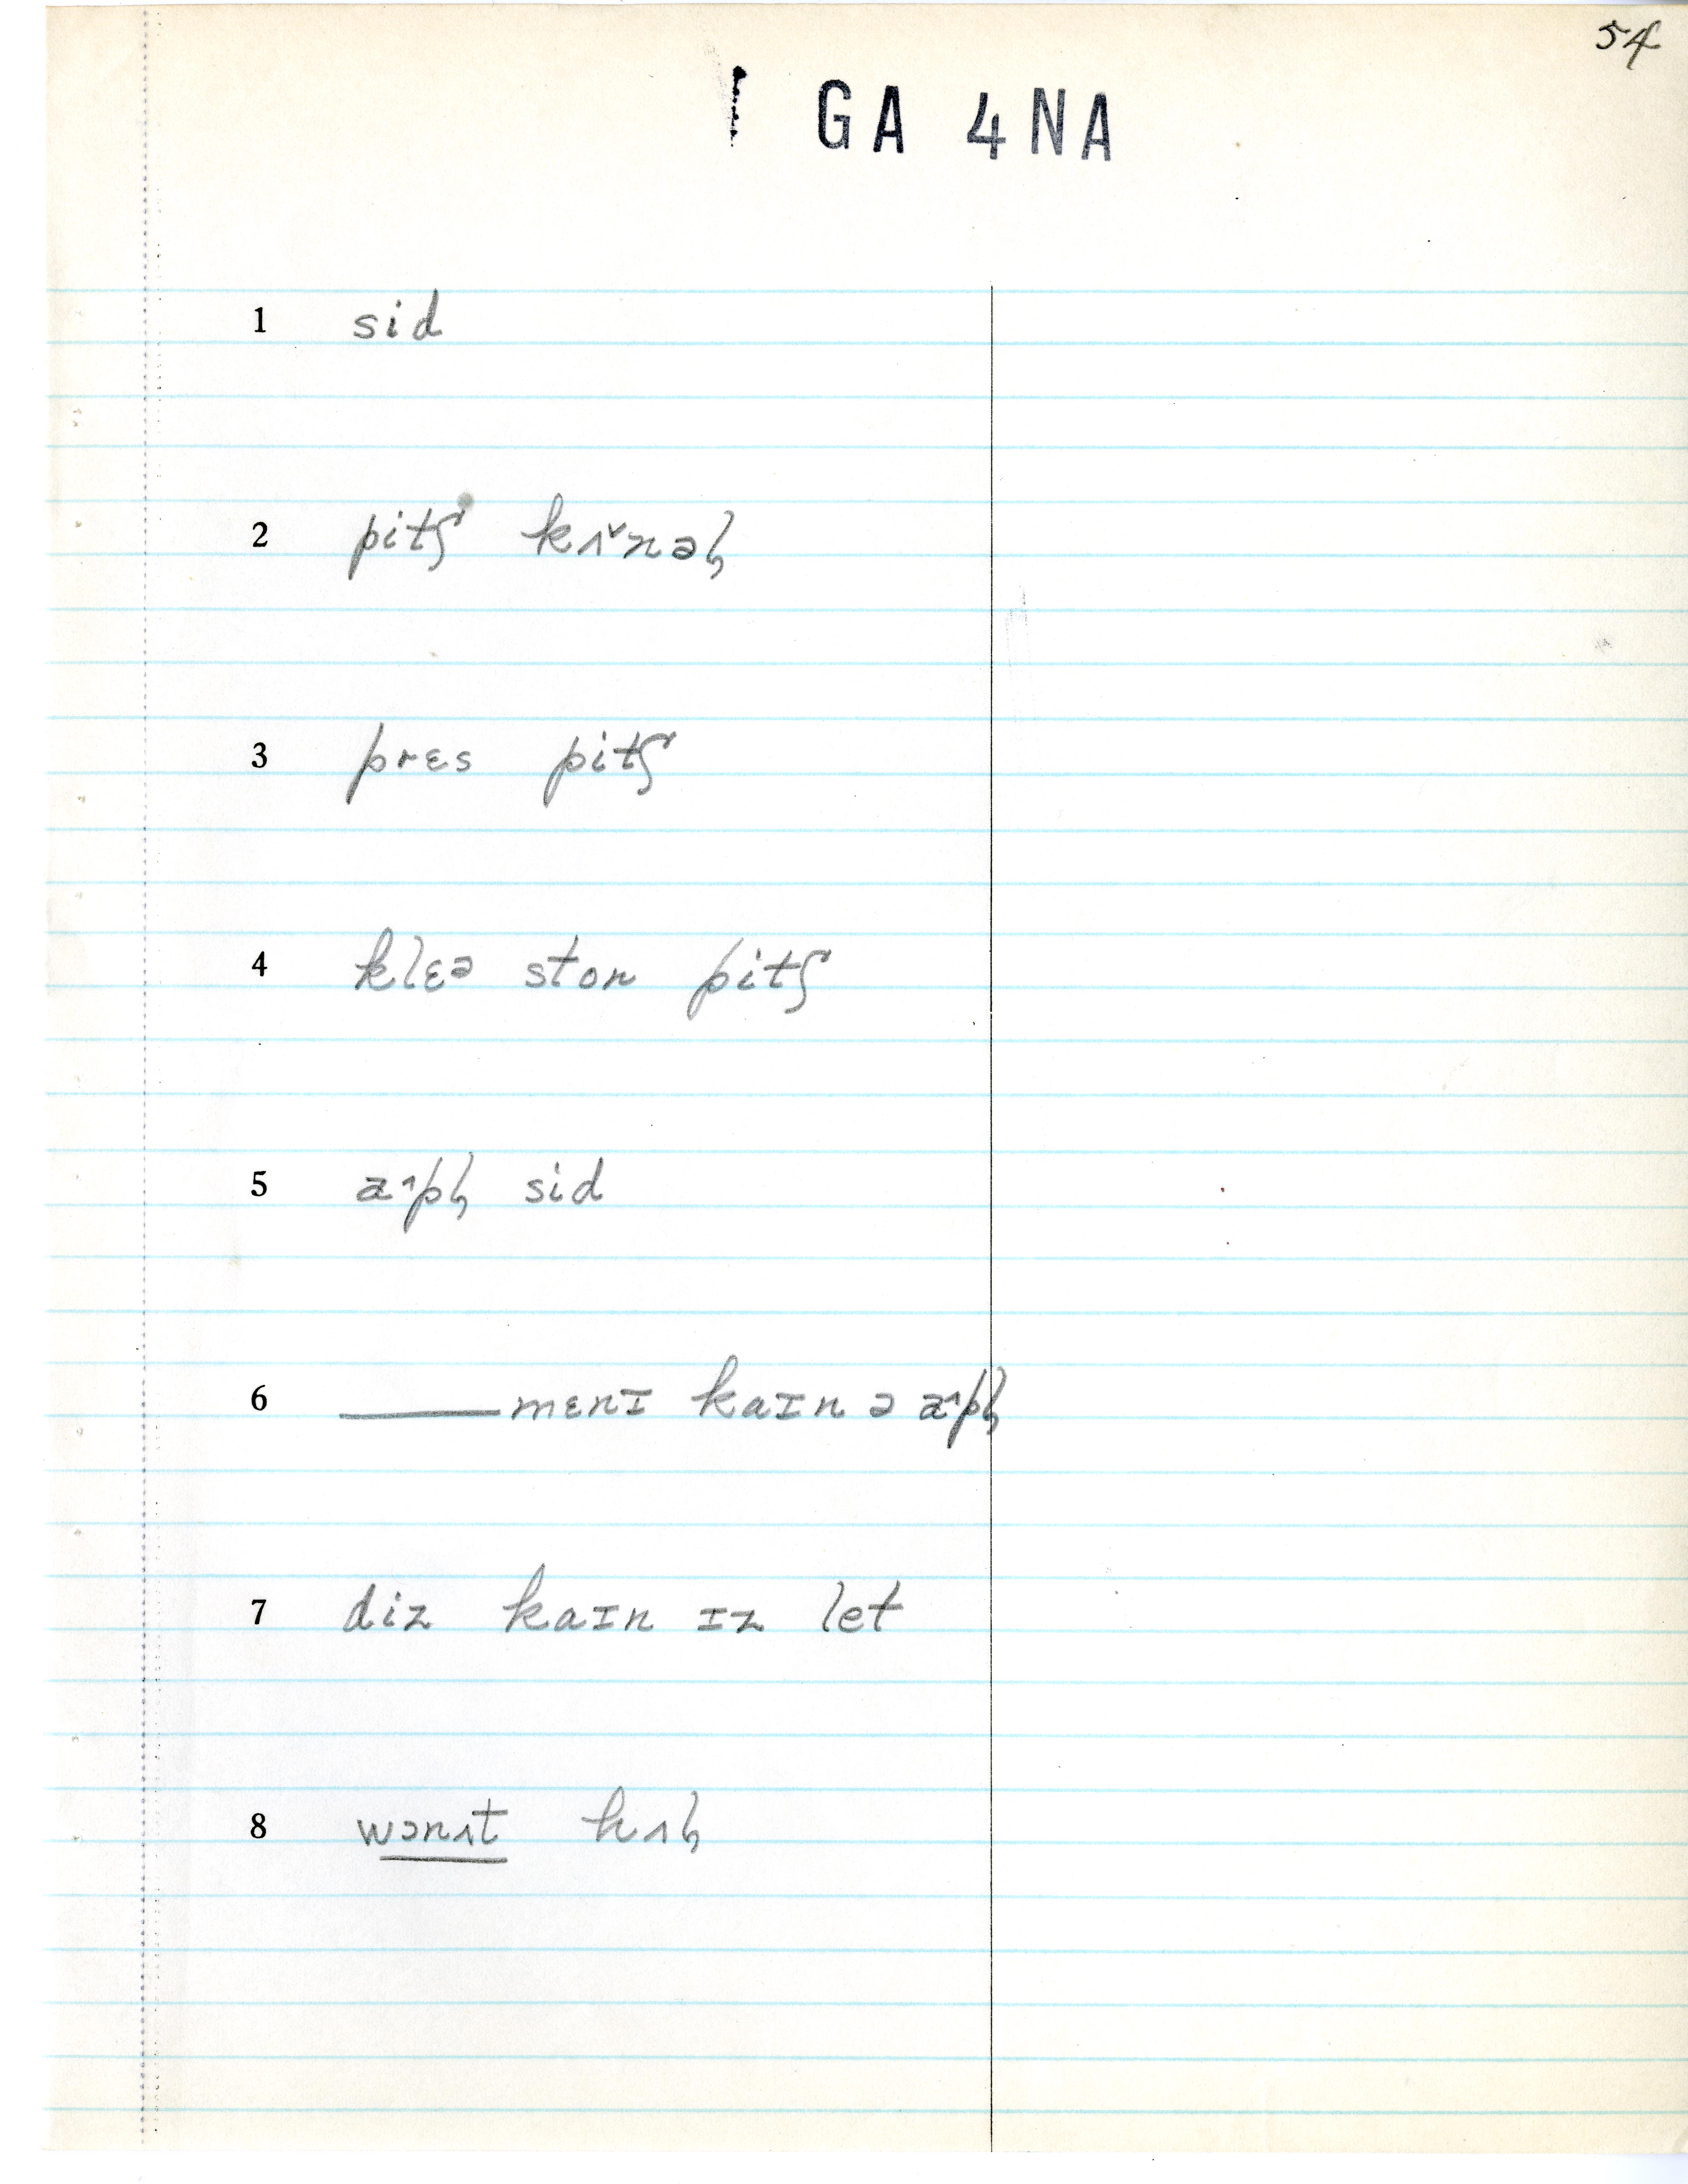 54
GA 4NA
1 sid
2 pitʃ kʌ˅nəl̡
3 prɛs pitʃ
4 klɛə ston pitʃ
5 a˄pl̡ sid
6 ——— mɛnɪ kaɪn ə a˄pl̡
7 diz kaɪn ɪz let
8 wɔnʌt hʌl̡